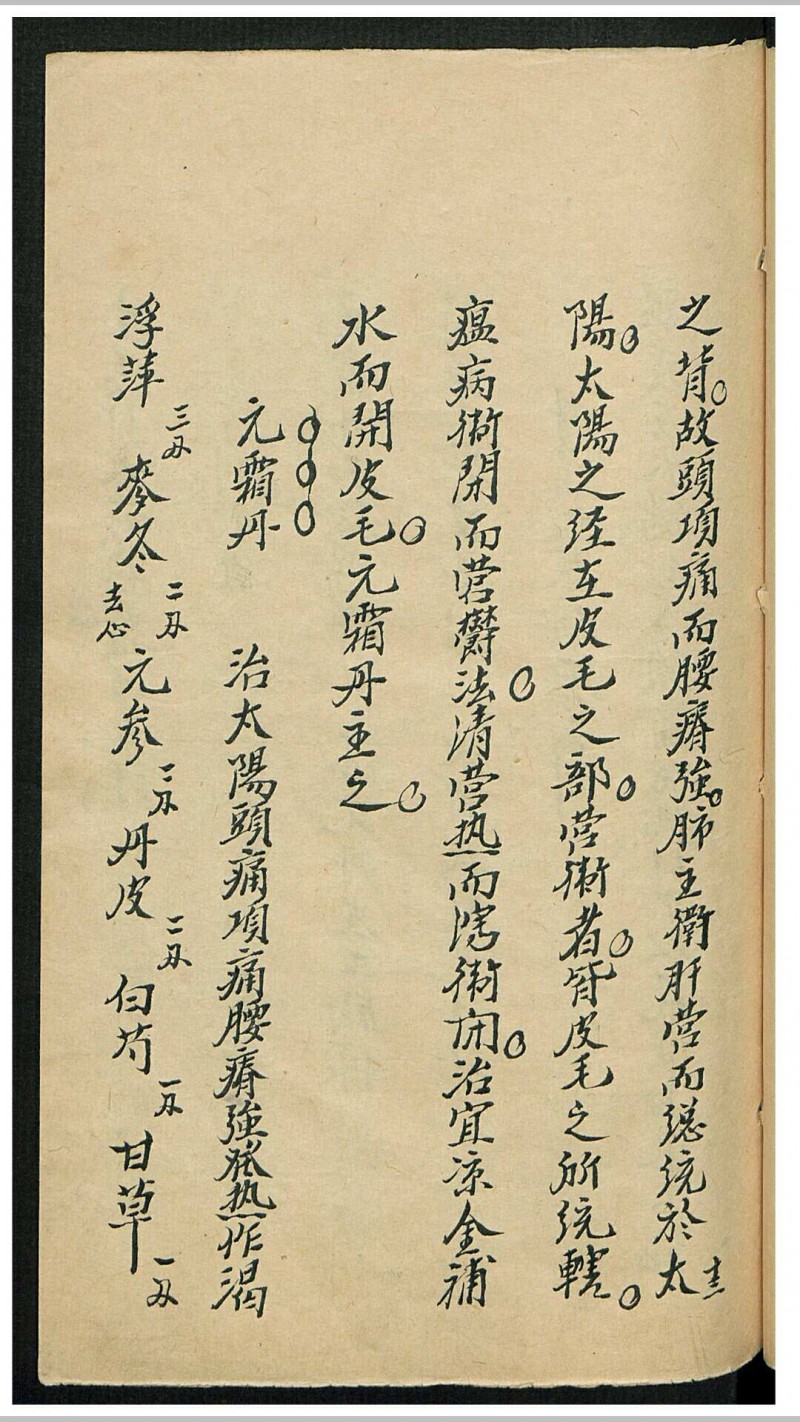 之背故頭項痛而腰瘠強肺主衛肝营而總统於太
陽太陽之经在皮毛之部营衛者皆皮毛之所统轄
瘟病衛閉而营欝法清营热而瀉衛闭治宜凉金補
水而開皮毛元霜丹主之
元霜丹　治太陽頭痛項痛腰瘠強發热作渴
浮萍三刄　麥冬二刄去心　元參二刄　丹皮二刄　白芍一刄　甘草一刄